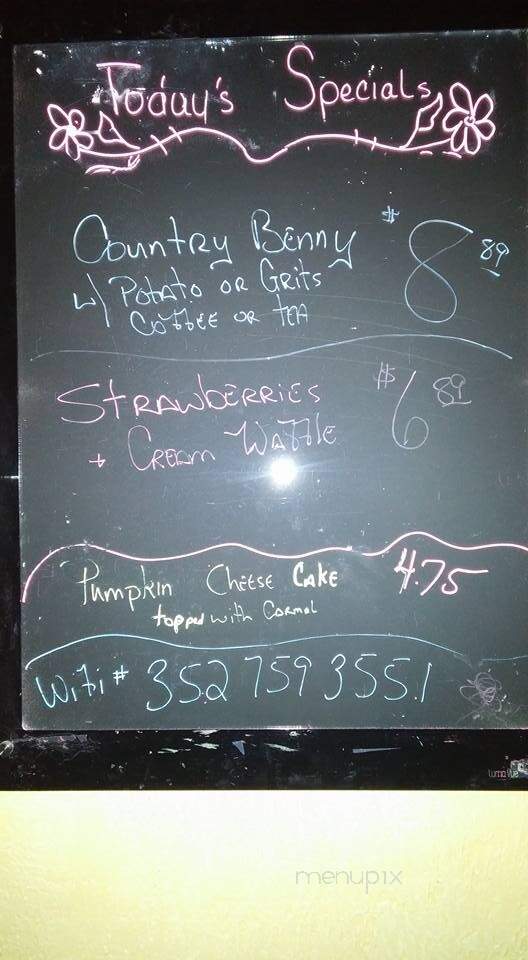 Today's Specials
Country Benny $8 89
w/ Potato or Grits
Coffee or Tea
Strawberries $6 89
+ Cream Waffle
Pumpkin Cheese Cake 4.75
topped with Carmal
Wifi # 352 759 3551
menupix